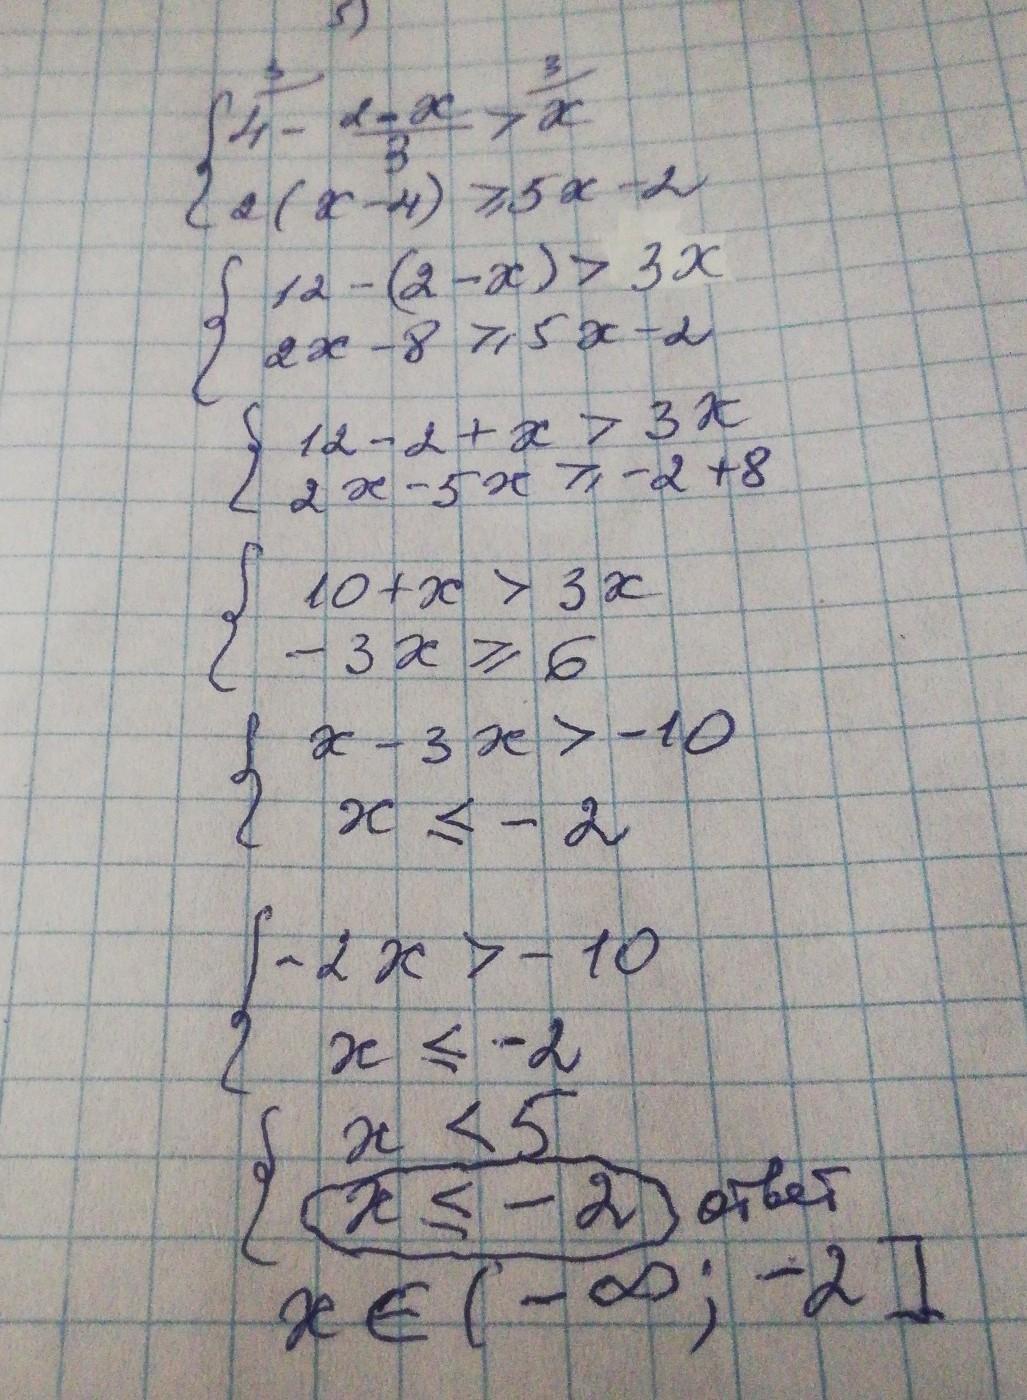 5)
3 3
4 - 2-x/3 > x
2(x-4) ⩾ 5x-2
12-(2-x) > 3x
2x-8 ⩾ 5x-2
12-2+x > 3x
2x-5x ⩾ -2+8
10+x > 3x
-3x ⩾ 6
x-3x > -10
x ≤ -2
-2x > -10
x ≤ -2
x < 5
x ≤ -2 ответ
x ∈ (-∞; -2]